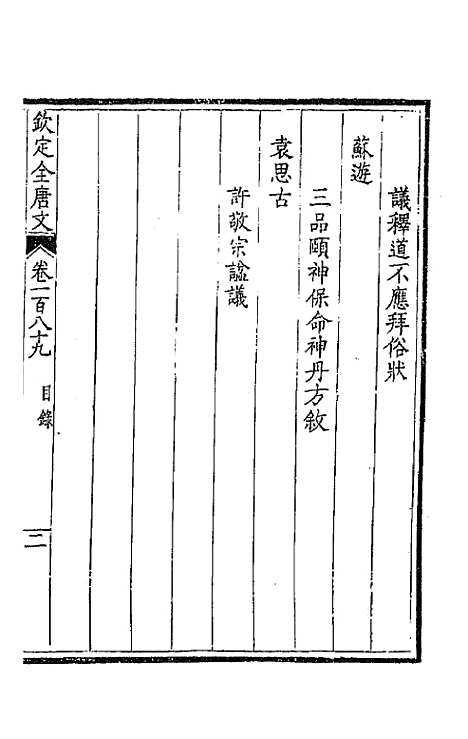 議釋道不應拜俗狀
蘇遊
三品頤神保命神丹方敘
袁思古
許敬宗諡議
欽定全唐文 卷一百八十九 目錄 二